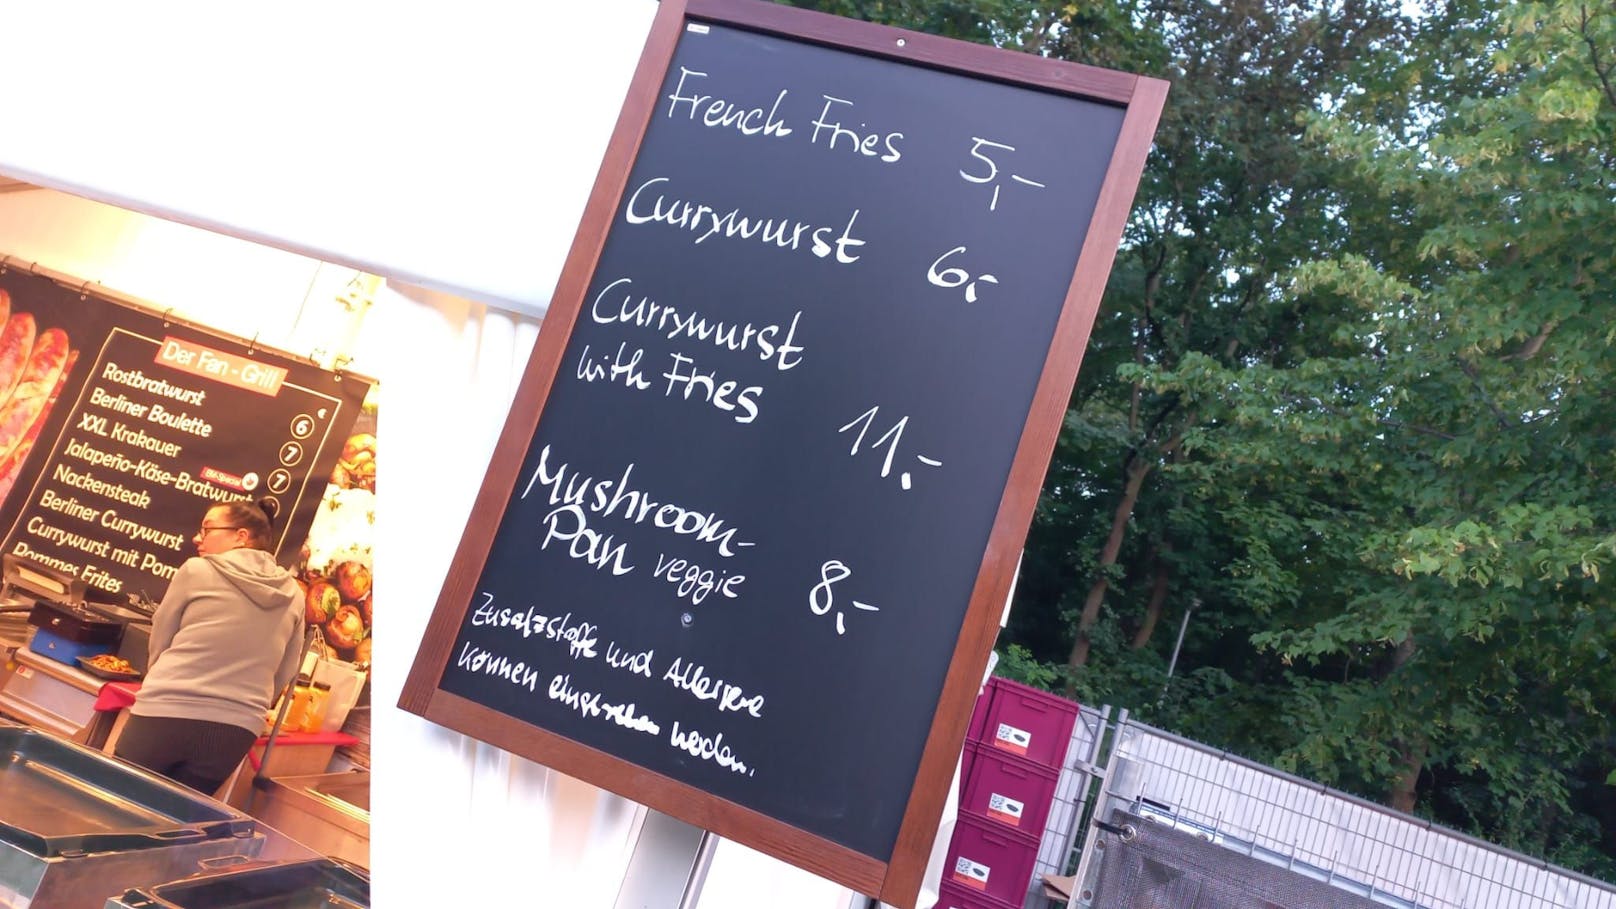 French Fries 5,-
Currywurst 6,-
Currywurst
with Fries 11.-
Mushroom-
Pan veggie 8,-
Zusatzstoffe und Allergene
können eingesehen werden.
Der Fan-Grill
€
Rostbratwurst 6
Berliner Boulette 7
XXL Krakauer 7
Jalapeño-Käse-Bratwurst
Nackensteak
Berliner Currywurst
Currywurst mit Pom
Pommes Frites